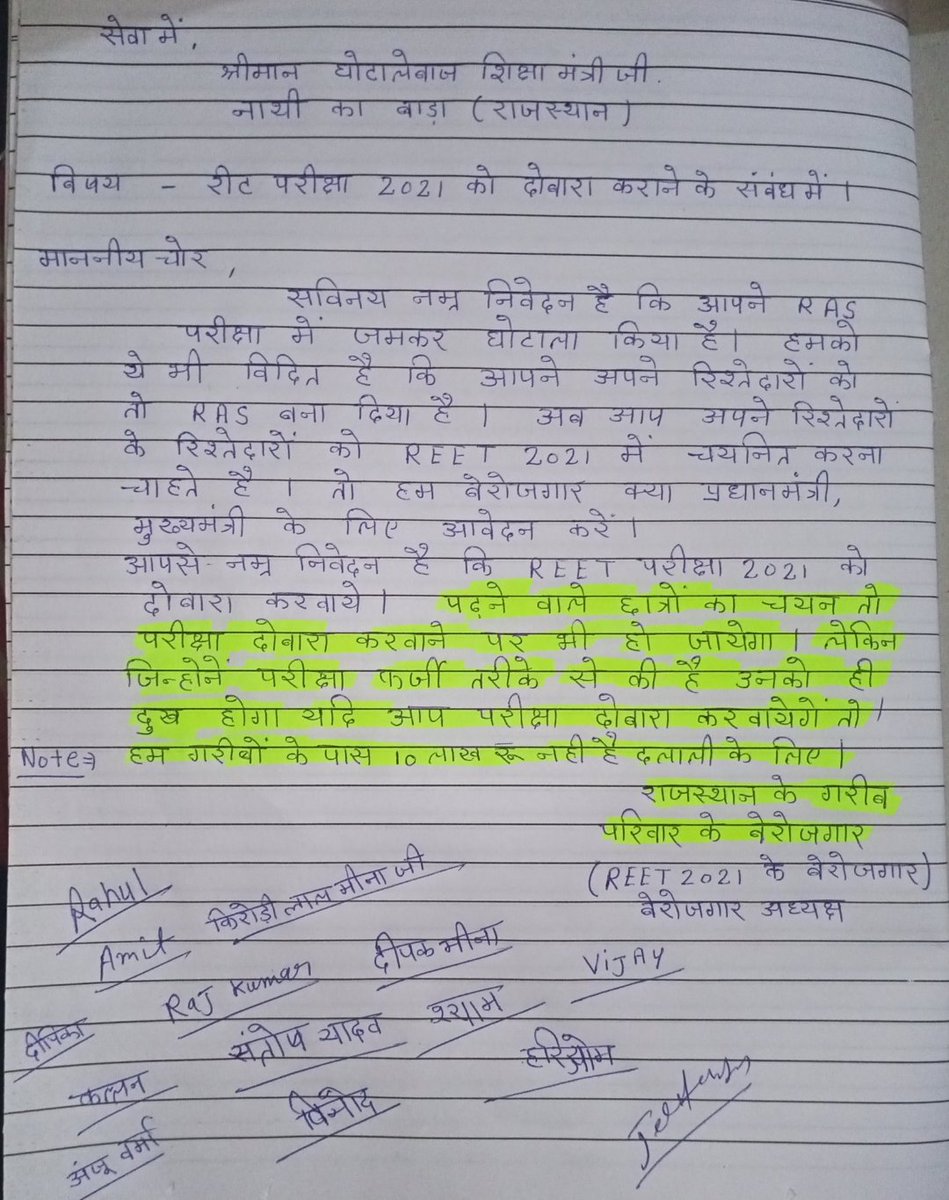 सेवा में,
श्रीमान घोटालेबाज शिक्षा मंत्री जी.
नाथी का बाड़ा (राजस्थान)
विषय - रीट परीक्षा 2021 को दोबारा कराने के संबंध में ।
माननीय चोर,
सविनय नम्र निवेदन है कि आपने RAS
परीक्षा में जमकर घोटाला किया है। हमको
ये भी विदित है कि आपने अपने रिश्तेदारों को
तो RAS बना दिया है । अब आप अपने रिश्तेदारों
के रिश्तेदारों को REET 2021 में चयनित करना
चाहते है । तो हम बेरोजगार क्या प्रधानमंत्री,
मुख्यमंत्री के लिए आवेदन करें।
आपसे नम्र निवेदन है कि REET परीक्षा 2021 को
दोबारा करवाये । पढ़ने वाले छात्रों का चयन तो
परीक्षा दोबारा करवाने पर भी हो जायेगा । लेकिन
जिन्होनें परीक्षा फर्जी तरीके से की है उनको ही
दुख होगा यदि आप परीक्षा दोबारा करवायेगें तो।
Note⇒ हम गरीबों के पास 10 लाख रू नही है दलाली के लिए।
राजस्थान के गरीब
परिवार के बेरोजगार
(REET 2021 के बेरोजगार)
बेरोजगार अध्यक्ष
Rahul
किरोड़ी लाल मीना जी
Amit
दीपक मीना
Raj Kumar
VIJAY
दीपिका
संतोष यादव
श्याम
हरिओम
कल्लन
विनोद
अंजू वर्मा